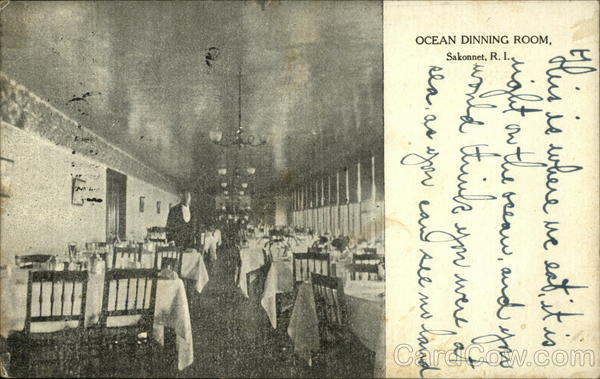 OCEAN DINNING ROOM,
Sakonnet, R. I.
This is where we eat, it is
right on the ocean, and you
would think you were at
sea, as you can see no land
CardCow.com